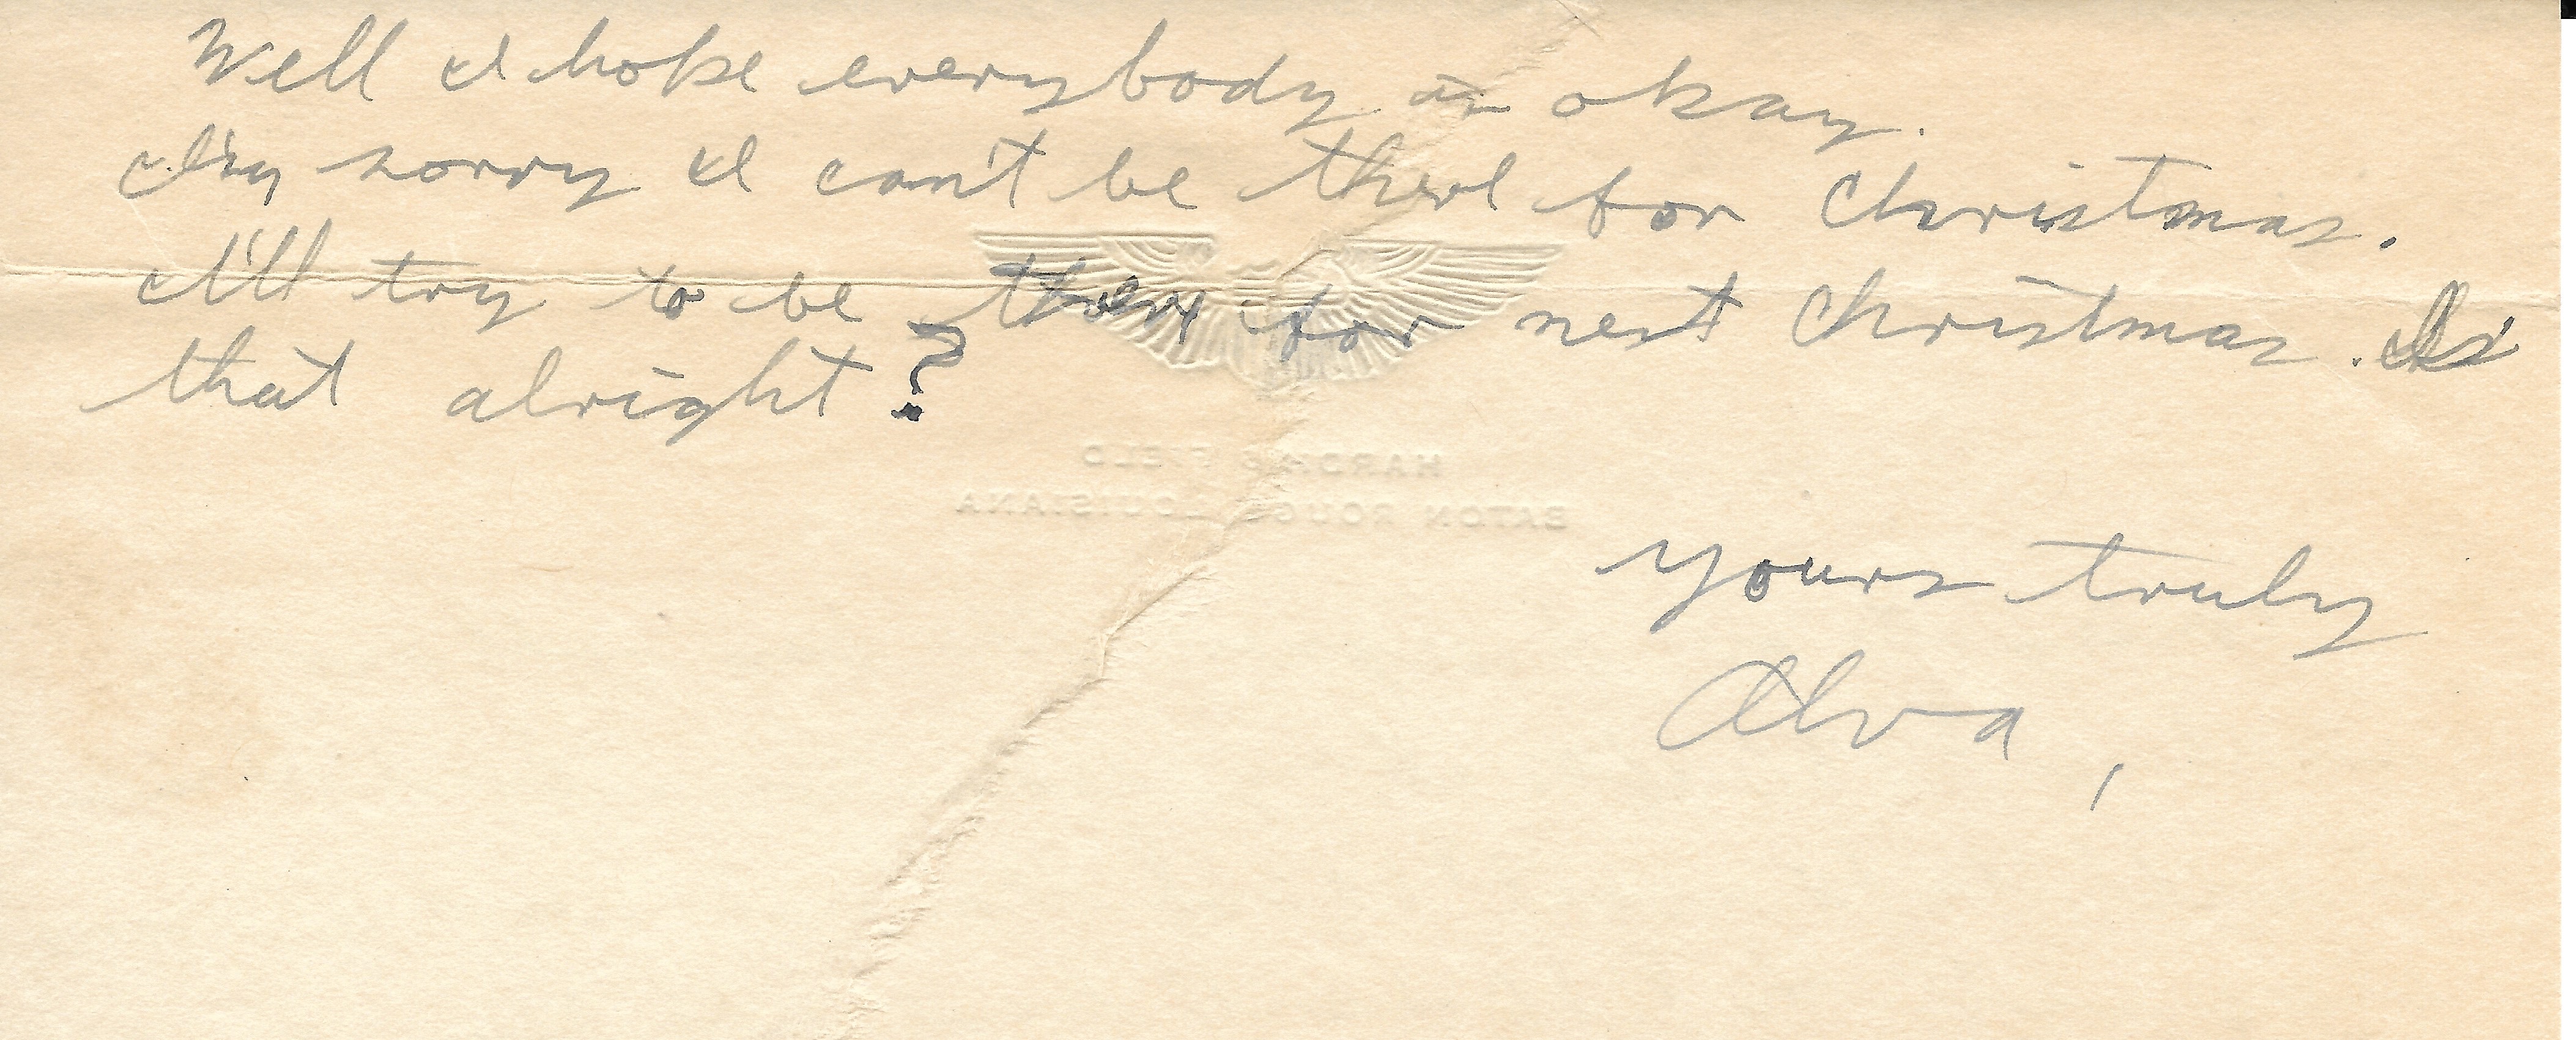 Well I hope everybody is okay.
I'm sorry I can't be there for Christmas.
I'll try to be there for next Christmas. Is
that alright?
HARDING FIELD
BATON ROUGE LOUISIANA
Yours truly
Alva,